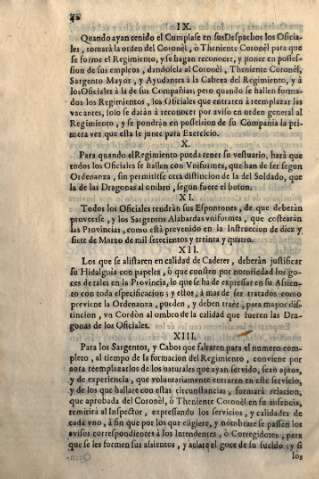 IX.
Quando ayan tenido el Cumplase en sus Despachos los Oficia-
les, tomarà la orden del Coronèl, ò Theniente Coronèl para que
se forme el Regimiento, y se hagan reconocer, y poner en posses-
sion de sus empleos, dandosela al Coronèl, Theniente Coronèl,
Sargento Mayor, y Ayudantes à la Cabeza del Regimiento, y à
los Oficiales à la de sus Compañias; pero quando se hallen forma-
dos los Regimientos, los Oficiales que entraren à reemplazar las
vacantes, solo se daràn à reconocer por aviso en orden general al
Regimiento, y se pondràn en possession de su Compañia la pri-
mera vez que esta se junte para Exercicio.
X.
Para quando el Regimiento pueda tener su vestuario, harà que
todos los Oficiales se hallen con Vniformes, que han de ser segun
Ordenanza, sin permitirse otra distincion de la del Soldado, que
la de las Dragonas al ombro, segun fuere el boton.
XI.
Todos los Oficiales tendràn sus Espontones, de que deberàn
proveerse, y los Sargentos Alabardas vniformes, que costearàn
las Provincias, como està prevenido en la Instruccion de diez y
siete de Marzo de mil setecientos y treinta y quatro.
XII.
Los que se alistaren en calidad de Cadetes, deberàn justificar
su Hidalguia con papeles, ò que conste por notoriedad los go-
ces de tales en la Provincia, lo que se ha de expressar en su Assien-
to con toda especificacion; y ellos, à mas de ser tratados como
previene la Ordenanza, pueden, y deben traer, para mayor dis-
tincion, vn Cordòn al ombro de la calidad que fueren las Dra-
gonas de los Oficiales.
XIII.
Para los Sargentos, y Cabos que faltaren para el numero com-
pleto, al tiempo de la formacion del Regimiento, conviene por
aora reemplazarlos de los naturales que ayan servido, sean aptos,
y de experiencia, que voluntariamente entraren en este servicio,
y de los que hallare con estas circunstancias, formarà relacion,
que aprobada del Coronèl, ò Theniente Coronèl en su ausencia,
remitirà al Inspector, expressando los servicios, y calidades de
cada vno, à fin que por los que eligiere, y nombrare se passen los
avisos correspondientes à los Intendentes, ò Corregidores, para
que se les formen sus assientos, y aclare el goce de su sueldo; y si
los